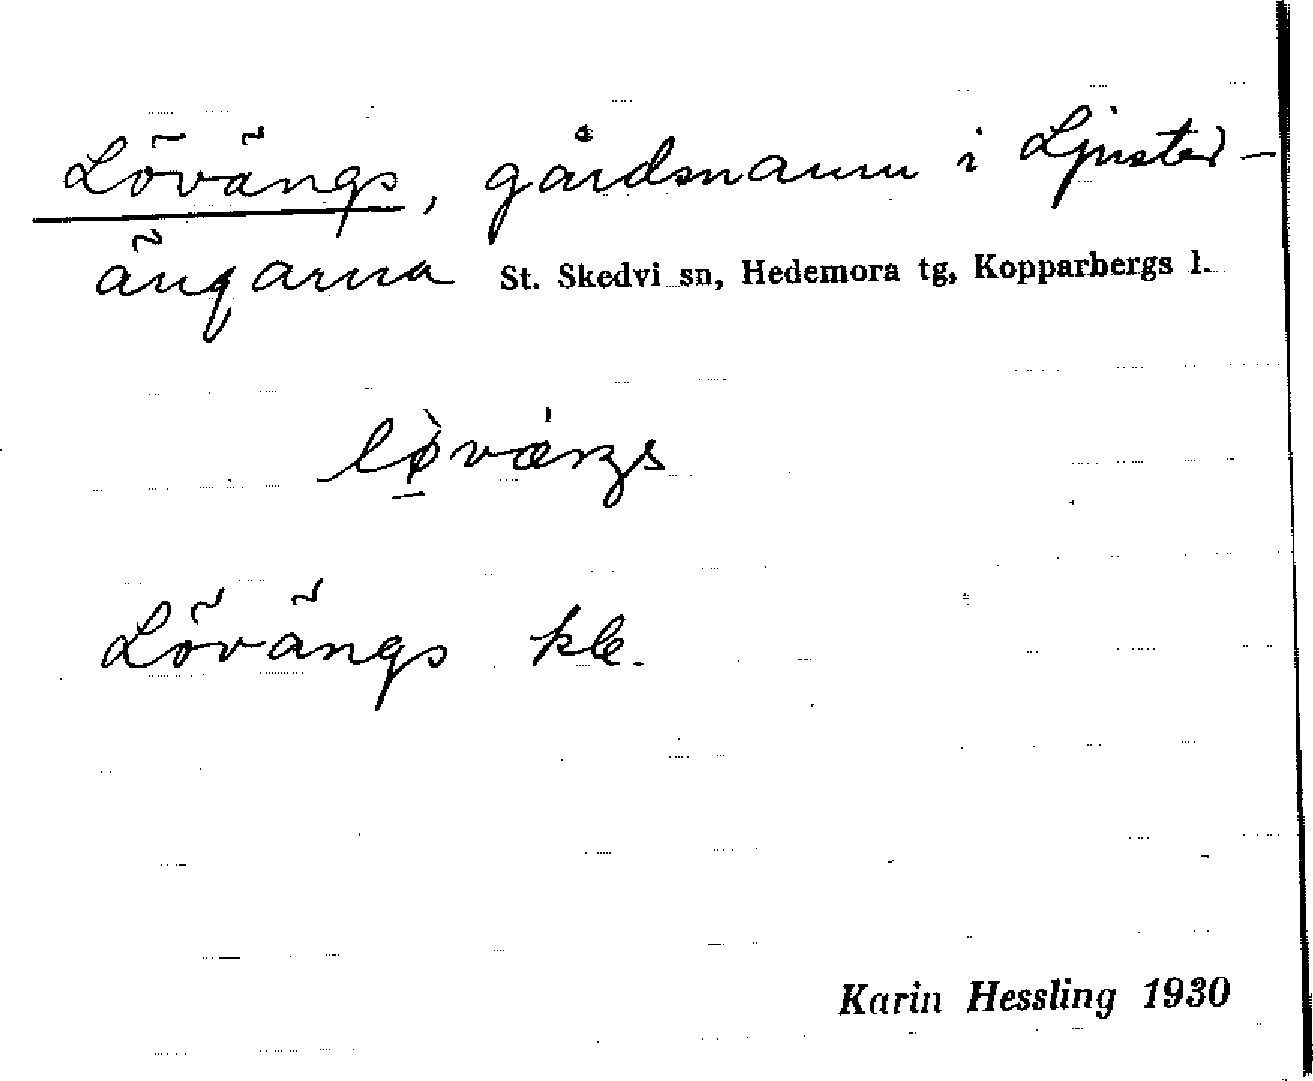 Lövängs, gårdsnamn i Ljuster-
ängarna St. Skedvi sn, Hedemora tg, Kopparbergs l.
Lövängs kll.
Karin Hessling 1930